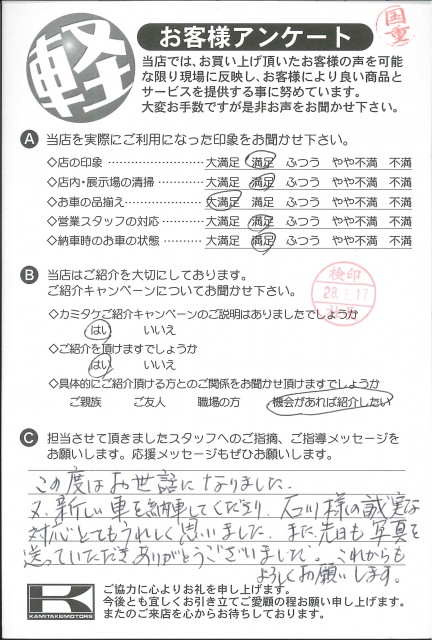 国重
軽
お客様アンケート
当店では、お買い上げ頂いたお客様の声を可能
な限り現場に反映し、お客様により良い商品と
サービスを提供する事に努めています。
大変お手数ですが是非お声をお聞かせ下さい。
A 当店を実際にご利用になった印象をお聞かせ下さい。
◇店の印象 …………………… 大満足 満足 ふつう やや不満 不満
◇店内・展示場の清掃 ………… 大満足 満足 ふつう やや不満 不満
◇お車の品揃え ………………… 大満足 満足 ふつう やや不満 不満
◇営業スタッフの対応 ………… 大満足 満足 ふつう やや不満 不満
◇納車時のお車の状態 ………… 大満足 満足 ふつう やや不満 不満
B 当店はご紹介を大切にしております。
ご紹介キャンペーンについてお聞かせ下さい。
検印
28.
.17
◇カミタケご紹介キャンペーンのご説明はありましたでしょうか
はい いいえ
◇ご紹介を頂けますでしょうか
はい いいえ
◇具体的にご紹介頂ける方とのご関係をお聞かせ頂けますでしょうか
ご親族 ご友人 職場の方 機会があれば紹介したい
C 担当させて頂きましたスタッフへのご指摘、ご指導メッセージを
お願いします。応援メッセージもぜひお願いします。
この度はお世話になりました。
又、新しい車を納車してくださり、石川様の誠実な
対応とてもうれしく思いました。また、先日も写真を
送っていただきありがとうございました。これからも
よろしくお願いします。
K
KAMITAKEMOTORS
ご協力に心よりお礼を申し上げます。
今後とも宜しくお引き立てご愛顧の程お願い申し上げます。
またのご来店を心からお待ちしております。